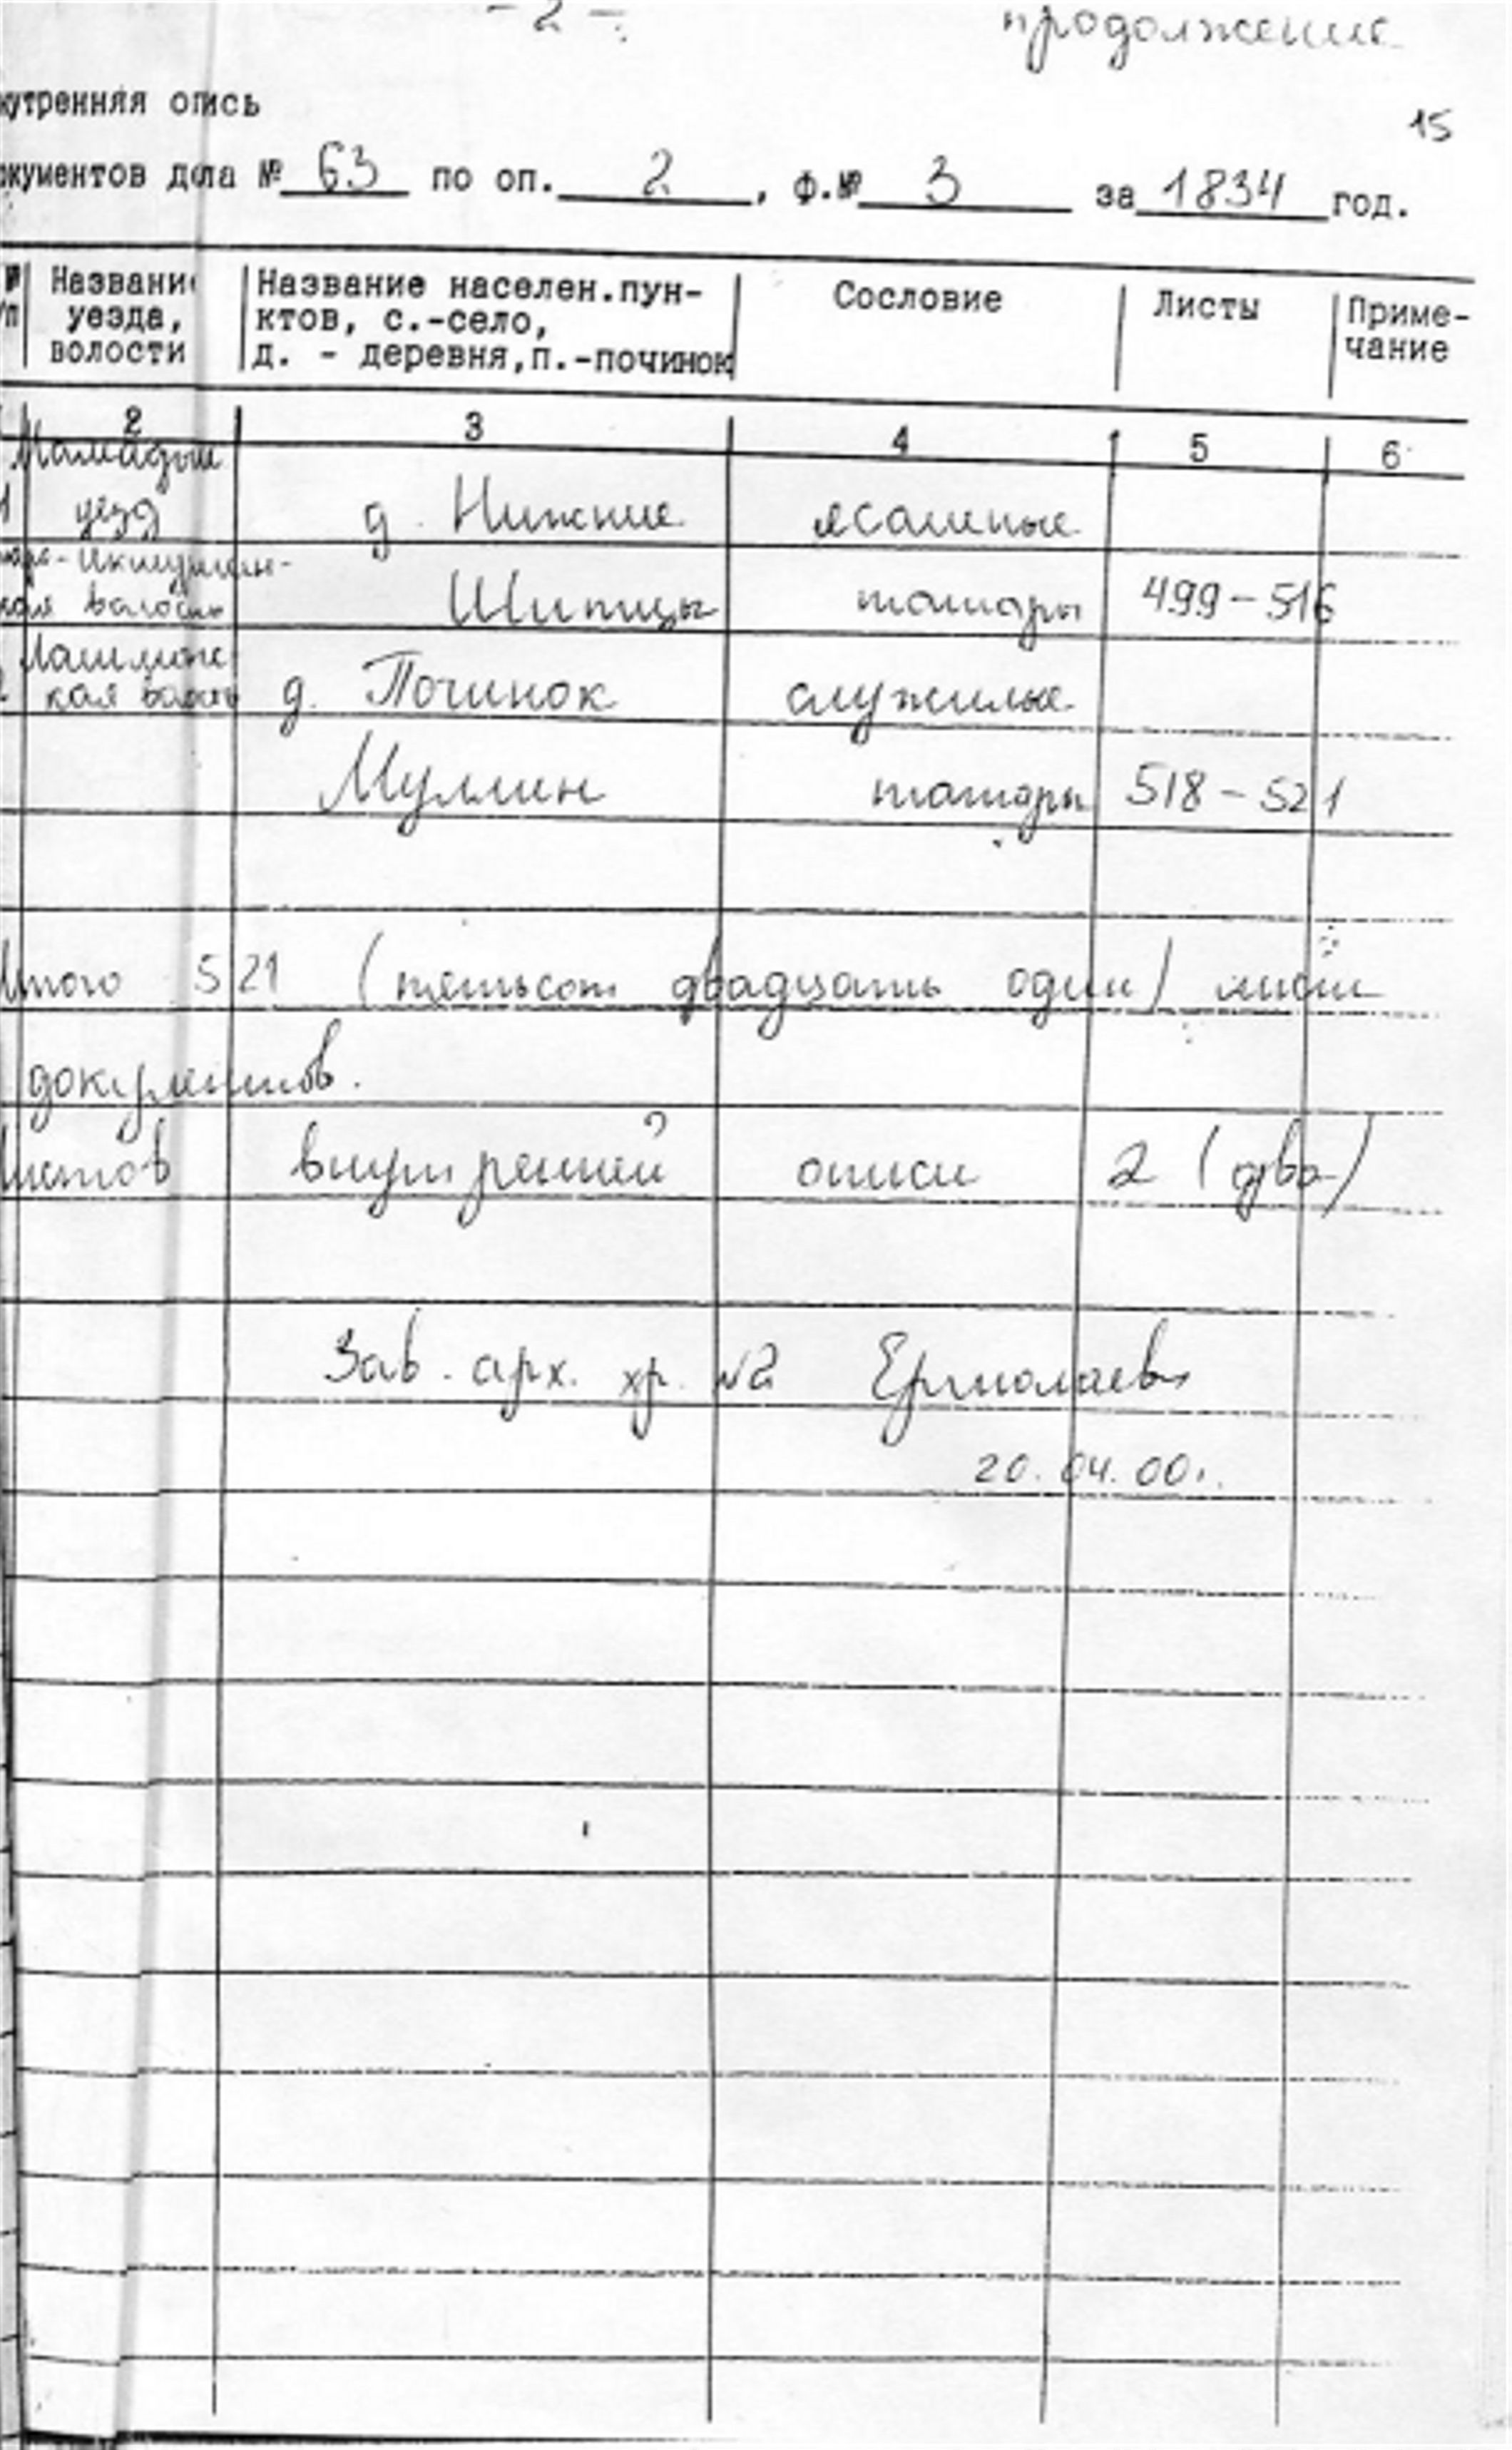 - 2 -
продолжение
15
утренняя опись
окументов дела № 63 по оп. 2, ф.№ 3 за 1834 год.
№ Название Название населен.пун- Сословие Листы Приме-
п уезда, ктов, с.-село, чание
волости д. - деревня, п.-починок
2 3 4 5 6
Мамадыш
1 уезд д. Нижние ясашные
кая волость Шипцы татары 499-516
кая волость д. Починок служилые
Муллин татары 518-521
Итого 521 (пятьсот двадцать один) лист
документов.
Листов внутренней описи 2 (два)
Зав. арх. хр. №2 Ермолаева
20.04.00г.